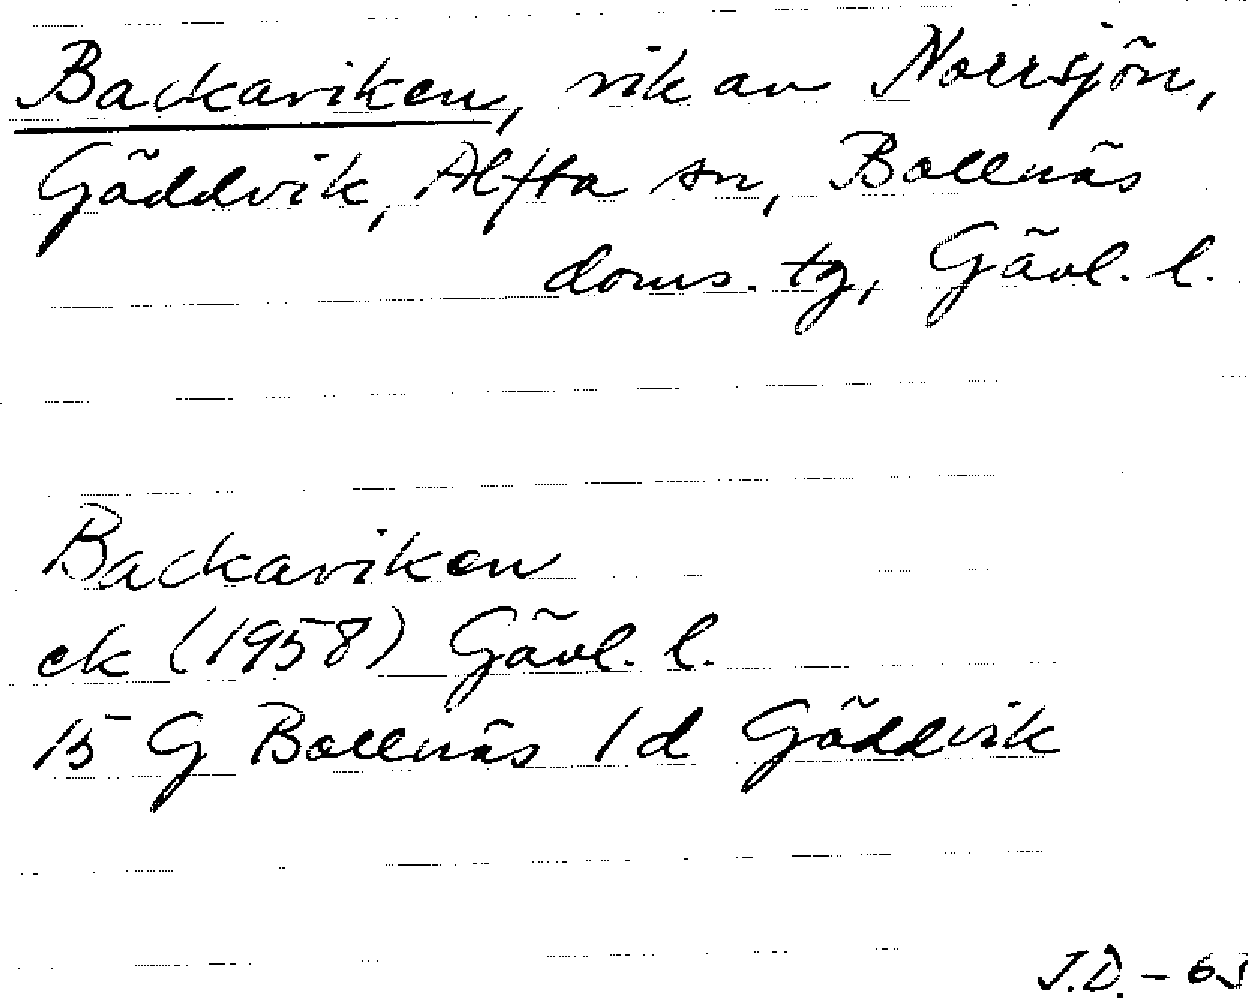 Backaviken, vik av Norrsjön,
Gäddvik, Alfta sn, Bollnäs
doms. tg, Gävl. l.
Backaviken
ek (1958) Gävl. l.
15 G Bollnäs 1 d Gäddvik
J.D. -